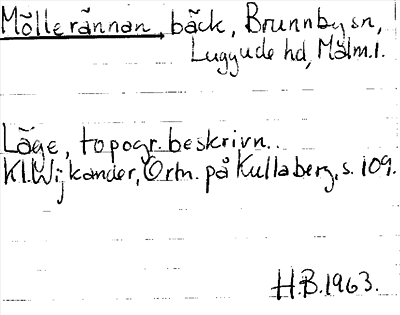 Möllerännan, bäck, Brunnby sn,
Luggude hd, Malm.l.
Läge, topogr. beskrivn.
Kl. Wijkander, Ortn. på Kullaberg, s. 109.
H.B. 1963.